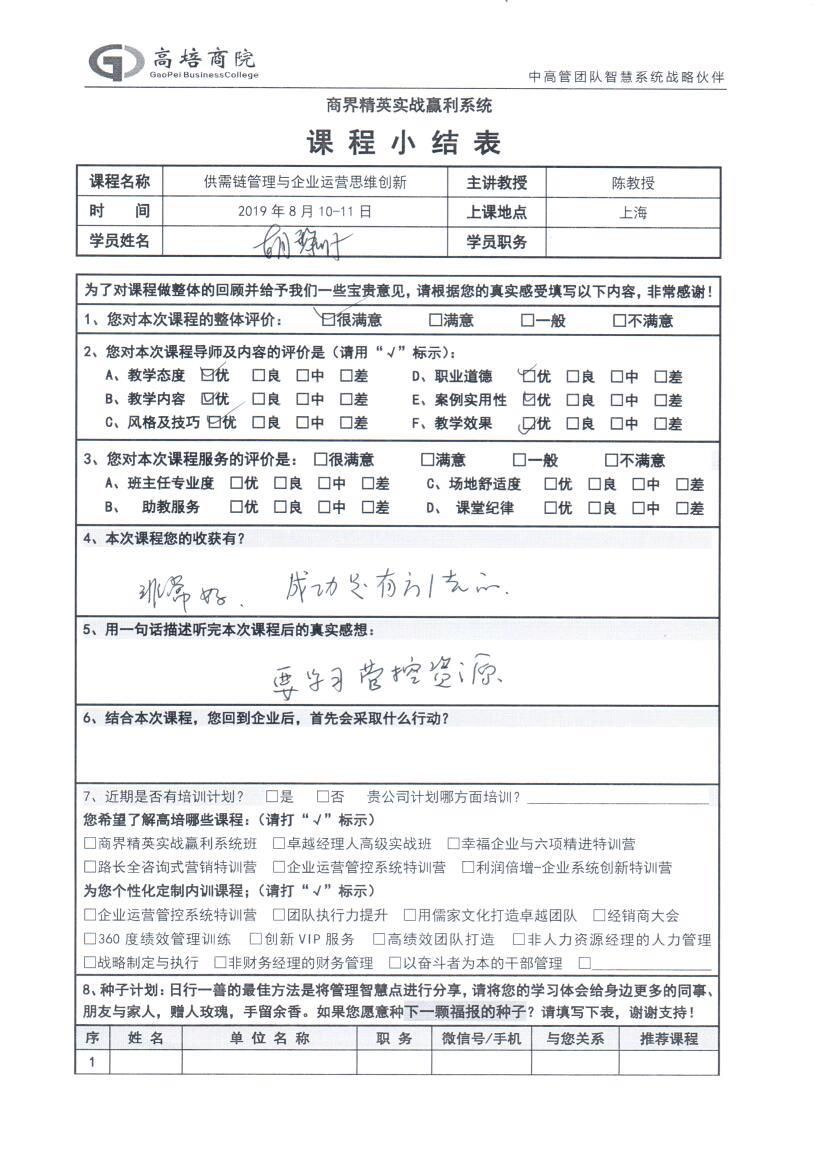 高培商院
GaoPei BusinessCollege
中高管团队智慧系统战略伙伴
商界精英实战赢利系统
课程小结表
课程名称 供需链管理与企业运营思维创新 主讲教授 陈教授
时 间 2019年8月10-11日 上课地点 上海
学员姓名 胡 学员职务
为了对课程做整体的回顾并给予我们一些宝贵意见，请根据您的真实感受填写以下内容，非常感谢！
1、您对本次课程的整体评价： ☑很满意 □满意 □一般 □不满意
2、您对本次课程导师及内容的评价是（请用“√”标示）：
A、教学态度 ☑优 □良 □中 □差 D、职业道德 ☑优 □良 □中 □差
B、教学内容 ☑优 □良 □中 □差 E、案例实用性 ☑优 □良 □中 □差
C、风格及技巧 ☑优 □良 □中 □差 F、教学效果 ☑优 □良 □中 □差
3、您对本次课程服务的评价是： □很满意 □满意 □一般 □不满意
A、班主任专业度 □优 □良 □中 □差 C、场地舒适度 □优 □良 □中 □差
B、 助教服务 □优 □良 □中 □差 D、 课堂纪律 □优 □良 □中 □差
4、本次课程您的收获有？
非常好． 成功是有方法的．
5、用一句话描述听完本次课程后的真实感想：
要学习管控资源
6、结合本次课程，您回到企业后，首先会采取什么行动？
7、近期是否有培训计划？ □是 □否 贵公司计划哪方面培训？
您希望了解高培哪些课程：（请打“√”标示）
□商界精英实战赢利系统班 □卓越经理人高级实战班 □幸福企业与六项精进特训营
□路长全咨询式营销特训营 □企业运营管控系统特训营 □利润倍增-企业系统创新特训营
为您个性化定制内训课程；（请打“√”标示）
□企业运营管控系统特训营 □团队执行力提升 □用儒家文化打造卓越团队 □经销商大会
□360度绩效管理训练 □创新VIP服务 □高绩效团队打造 □非人力资源经理的人力管理
□战略制定与执行 □非财务经理的财务管理 □以奋斗者为本的干部管理 □
8、种子计划：日行一善的最佳方法是将管理智慧点进行分享，请将您的学习体会给身边更多的同事、
朋友与家人，赠人玫瑰，手留余香。如果您愿意种下一颗福报的种子？请填写下表，谢谢支持！
序 姓名 单位名称 职务 微信号/手机 与您关系 推荐课程
1